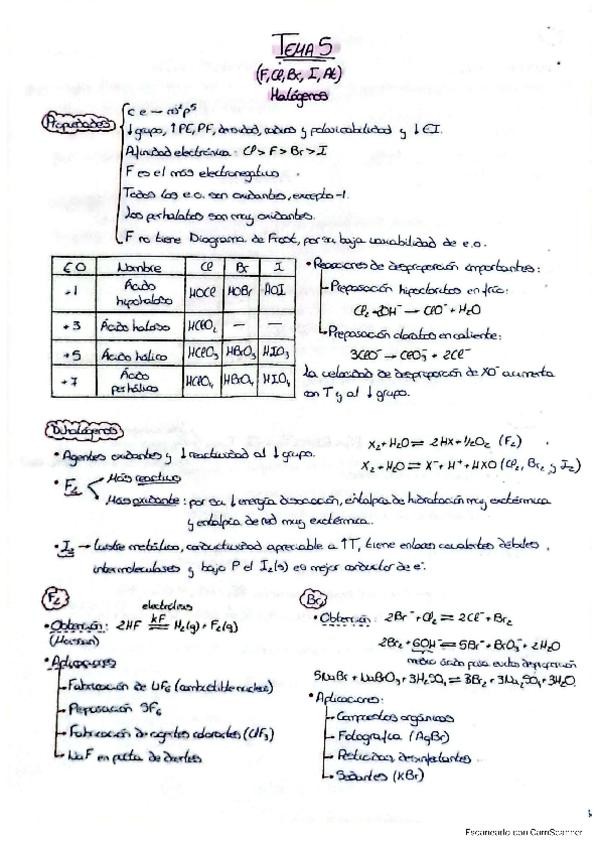 TEMA 5
(F, Cl, Br, I, At)
Halógenos
Propiedades
ce → ns²p⁵
↓ grupo, ↑ PE, PF, densidad, radios y polarizabilidad y ↓ EI.
Afinidad electrónica: Cl > F > Br > I
F es el más electronegativo
Todos los e.o. son oxidantes, excepto -1.
Los perhalatos son muy oxidantes.
F no tiene Diagrama de Frost, por su baja variabilidad de e.o.
EO Nombre Cl Br I
+1 Ácido hipohaloso HOCl HOBr HOI
+3 Ácido haloso HClO₂ — —
+5 Ácido hálico HClO₃ HBrO₃ HIO₃
+7 Ácido perhálico HClO₄ HBrO₄ HIO₄
• Reacciones de desproporción importantes:
Preparación hipocloritos en frío:
Cl₂ + 2OH⁻ → ClO⁻ + H₂O
Preparación cloratos en caliente:
3ClO⁻ → ClO₃⁻ + 2Cl⁻
La velocidad de desproporción de XO⁻ aumenta
con T y al ↓ grupo.
Dihalógenos
• Agentes oxidantes y ↓ reactividad al ↓ grupo.
X₂ + H₂O ⇌ 2HX + 1/2O₂ (F₂)
X₂ + H₂O ⇌ X⁻ + H⁺ + HXO (Cl₂, Br₂ y I₂)
• F₂
Más reactivo
Más oxidante: por su ↓ energía disociación, entalpía de hidratación muy exotérmica
y entalpía de red muy exotérmica.
• I₂ → Lustre metálico, conductividad apreciable a ↑T, tiene enlaces covalentes débiles
intermoleculares y bajo P el I₂(s) es mejor conductor de e⁻.
F₂
• Obtención: 2HF ⇌ H₂(g) + F₂(g)
electrólisis
KF
(Moissan)
• Aplicaciones
Fabricación de UF₆ (combustible nuclear)
Preparación SF₆
Fabricación de agentes clorantes (ClF₃)
NaF en pasta de dientes
Br
• Obtención: 2Br⁻ + Cl₂ ⇌ 2Cl⁻ + Br₂
2Br₂ + 6OH⁻ ⇌ 5Br⁻ + BrO₃⁻ + 2H₂O
medio ácido para evitar desproporción
5NaBr + NaBrO₃ + 3H₂SO₄ ⇌ 3Br₂ + 3Na₂SO₄ + 3H₂O
• Aplicaciones:
Compuestos orgánicos
Fotografía (AgBr)
Pesticidas desinfectantes
Sedantes (KBr)
Escaneado con CamScanner